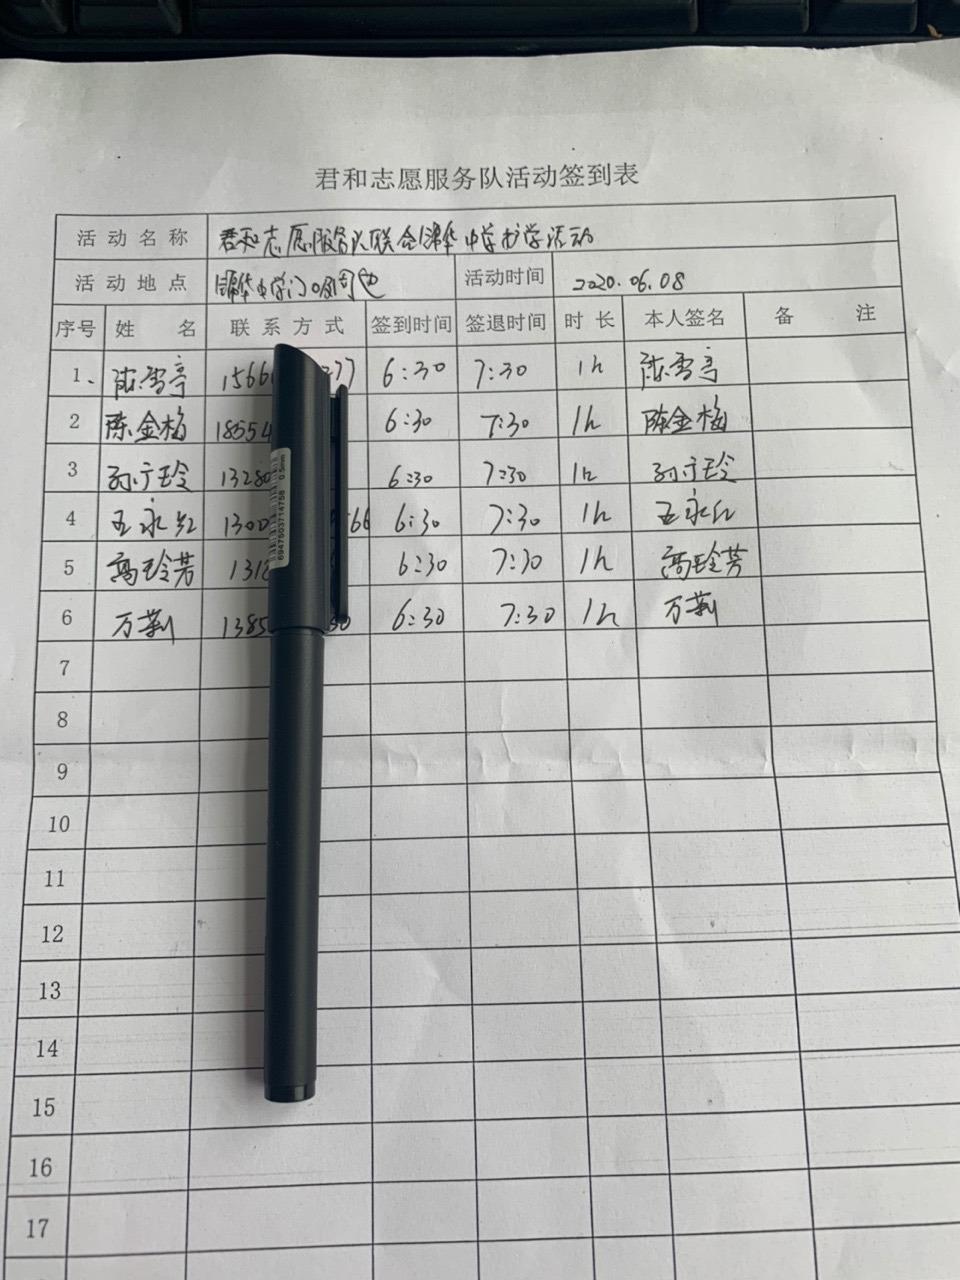 君和志愿服务队活动签到表
活动名称 君和志愿服务队联合锦华中学护学活动
活动地点 锦华中学门口及周边 活动时间 2020.06.08
序号 姓 名 联系方式 签到时间 签退时间 时长 本人签名 备 注
1、 陈雪亭 1566 377 6:30 7:30 1h 陈雪亭
2 陈金梅 18554 6:30 7:30 1h 陈金梅
3 孙广玲 13280 6:30 7:30 1h 孙广玲
4 王永红 1300 66 6:30 7:30 1h 王永红
5 高玲芳 1318 6:30 7:30 1h 高玲芳
6 万荆 1385 30 6:30 7:30 1h 万荆
7
8
9
10
11
12
13
14
15
16
17
6947503714758 0.5mm